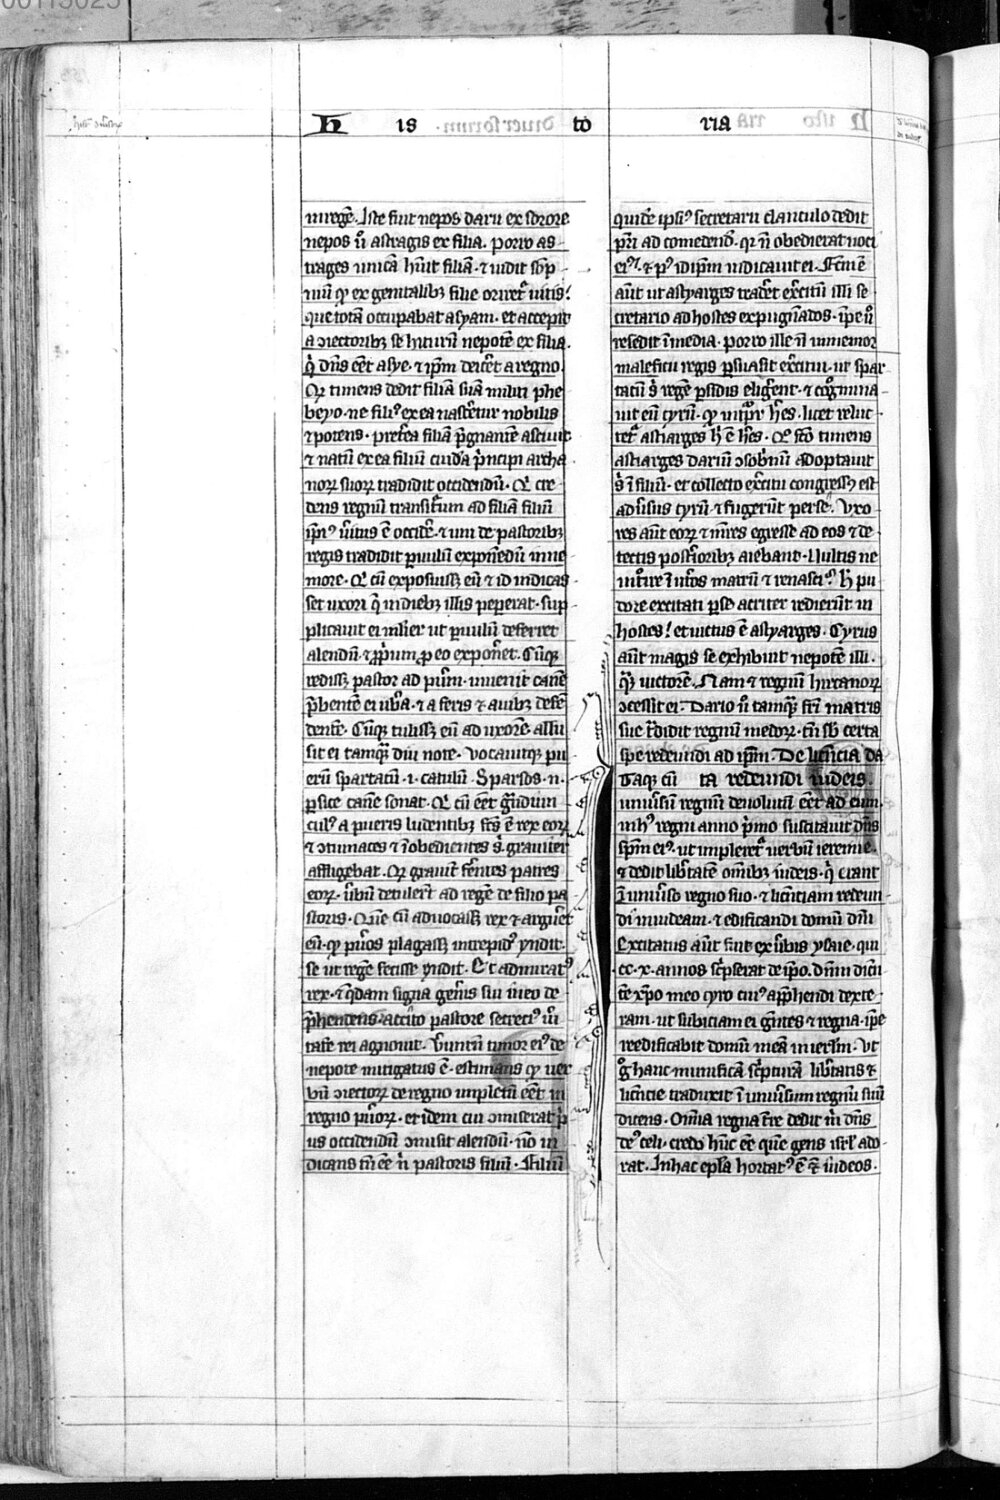 H is to ria
in regē. Iste fuit nepos darii ex sorore
nepos ū astragis ex filia. porro as-
trages unicā habuit filiā. ⁊ uidit sōp-
niū qꝫ ex genitalibꝫ filie oriret᷑ uitis!
que totā occupabat asyam. et accepit
a ꝯiectoribꝫ se hiturū nepotē ex filia.
q̇ dn̄s eēt asye. ⁊ ip̄m deicēt a regno.
Qꝫ timens dedit filiā suā militi phe
beyo. ne filiꝰ ex ea nasceret᷑ nobilis
⁊ potens. pret̄ea filiā p̄gnantē asciuit
⁊ natū ex ea filiū cuidā p̄ncipi archa
noꝝ suoꝝ tradidit occidendū. Qi cre
dens regnū transiturum ad filiā filiū
ip̄iꝰ ūitus ē occidē. ⁊ uni de pastoribꝫ
regis tradidit puulū exponēdū in ne
more. Qi cū exposuissꝫ eū ⁊ id indicas
set uxori q̄ in diebꝫ illis pepererat. sup-
plicauit ei mlier ut puulū deferret
alendū. ⁊ ꝓpͥum ꝓ eo exponēt. Cūqꝫ
redissꝫ pastor ad puūm. inuenit canē
p̄bentē ei ubā. ⁊ a feris ⁊ auibꝫ defē
dentē. Cūqꝫ tulissꝫ eū ad uxorē. allu
sit ei tamqꝫ diu note. Vocauitqꝫ pu
erū spartacū .i. catulū. Spartos .n.
ꝑsice canē sonat. Qi cū eēt grādiun
culꝰ a pueris ludentibꝫ fcūs ē rex eoꝝ
⁊ ꝯtumaces ⁊ īobedientes s̄. grauiter
affligebat. Qꝫ grauit᷑ ferētes patres
eoꝝ. ūbū detulert̄ ad regē de filio pa
storis. Quē cū aduocassꝫ rex ⁊ argueret
eū. qꝫ puos plagassꝫ intrepidꝰ rn̄dit.
se ut regē fecisse rn̄dit. Et admiratꝰ
rex. ⁊ q̄dam signa gen̄is sui in eo de
p̄hendens. accito pastore secretiꝰ ui
tatē rei agnouit. Uerūtn̄ timor eiꝰ de
nepote mitigatus ē. estimans qꝫ uer
bū ꝯiectoꝝ de regno impletū eēt in
regno pueroꝝ. et idem cui ꝯmiserat p̄
us occidendū ꝯmisit alendū. nō in
dicans tn̄ eē n̄ pastoris filiū. Filiū
quidē ipsiꝰ secretarii clanculo dedit
p̄ri ad comedendū. qꝛ n̄ obedierat uoci
eiꝰ. ⁊ pꝰ idip̄m indicauit ei. Factū ē
aūt ut astyarges tradēt exc̄itū illi se
cretario ad hostes expugnādos. ip̄e ū
resedit ī media. porro ille n̄ immemor
maleficii regis ꝑsuasit exc̄itui. ut spar
tacū s̄ regē ꝑsidis eligerent. ⁊ cognomina
uit eū cyrū. qꝫ int̄pr̄ h̄es. licet reluc
tet᷑ astiarges h̄ ē h̄es. Qi s̄cdo timens
astiarges dariū ꝯsobrinū adoptauit
s̄ ī filiū. et collecto exc̄itu congressꝫ est
aduersus cyrū. ⁊ fugerūt perse. Vxo
res aūt eoꝝ ⁊ m̄res egresse ad eos ⁊ de
tectis post̄ioribꝫ aiebant. Uultis ne
int̄re ī ut̄os matrū ⁊ renasci? h̄ pu
dore excitati ꝑse acriter redierūt in
hostes! et uictus ē astyarges. Cyrus
aūt magis se exhibuit nepotē illi.
q̄ꝫ uictorē. Nam ⁊ regnū hircanoꝝ
ꝯcessit ei. Dario ū tamqꝫ fr̄i matris
sue t̄didit regnū medoꝝ. tn̄ sb̄ certa
spe redeundi ad ip̄m. De licēcia da
taqꝫ cū ta redeundi iudeis.
uniuersū regnū deuolutū eēt ad eum.
in hꝰ regni anno p̄mo suscitauit dn̄s
sp̄m eiꝰ. ut impleret᷑ uerbū ieremie.
⁊ dedit lib̄tatē om̄ibꝫ iudeis. q̇ erant
ī uniuerso regno suo. ⁊ licētiam redeun
di in iudeam. ⁊ edificandi domū dn̄i
Excitatus aūt fuit ex ūbis ysaie. qui
cc.x. annos sc̄pserat de ip̄o. dn̄m dicē
tē xp̄o meo cyro cuiꝰ app̄hendi dexte-
ram. ut subiciam ei gētes ⁊ regna. ip̄e
reedificabit domū meā in ierl̄m. Ut
g̊ hanc munificā sc̄pturā lib̄tatis ⁊
licēcie traduxit ī uniuersum regnū suū
dicens. Om̄ia regna t̄re dedit m̄ dn̄s
deꝰ celi. credo hūc eē quē gens isrl̄ ado-
rat. In hac epl̄a hortatꝰ ē ⁊ iudeos.